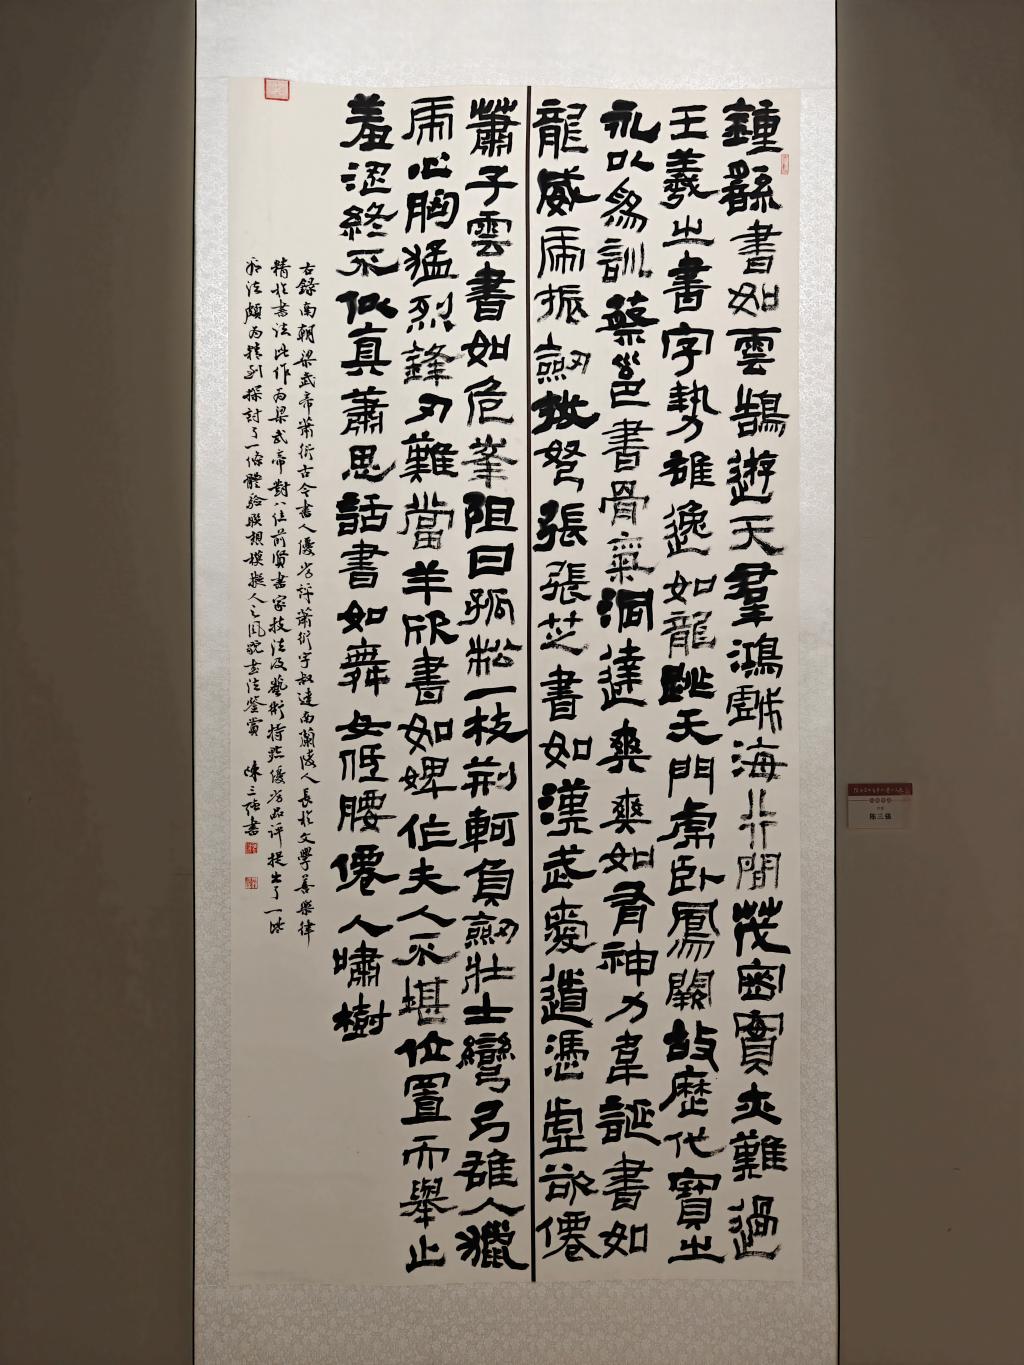 鍾繇書如雲鵠遊天羣鴻戲海行間茂密實亦難過
王羲之書字勢雄逸如龍跳天門虎臥鳳闕故歷代寶之
永以為訓蔡邕書骨氣洞達爽爽如有神力韋誕書如
龍威虎振劒拔弩張張芝書如漢武愛道憑虛欲僊
蕭子雲書如危峯阻日孤松一枝荊軻負劒壯士彎弓雄人獵
虎心胸猛烈鋒刃難當羊欣書如婢作夫人不堪位置而舉止
羞澀終不似真蕭思話書如舞女低腰僊人嘯樹
古錄南朝梁武帝蕭衍古今書人優劣評蕭衍字叔達南蘭陵人長於文學善樂律
精於書法此作為梁武帝對八位前賢書家技法及藝術特點優劣品評提出了一些
書法頗為精到探討了一條體驗聯想模擬人之風貌書法鑒賞 陳三強書
陈三强